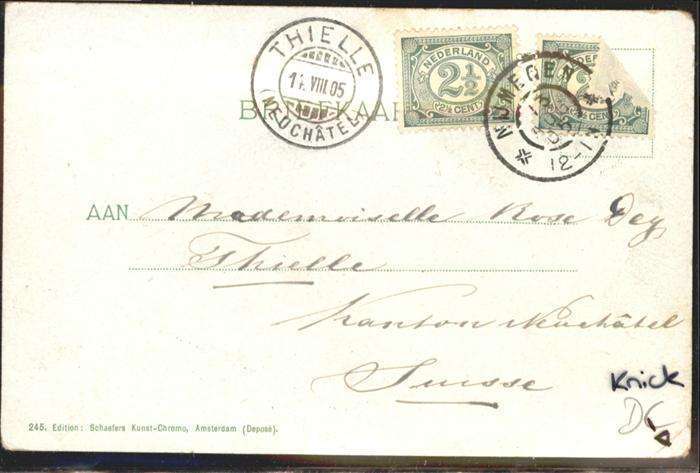 THIELLE
11. VIII. 05
(NEUCHÂTEL)
NEDERLAND
2½
(2½ CENT)
NIJMEGEN
12-1
BRIEFKAART
AAN Mademoiselle Rose Dey
Thielle
Kanton Neuchâtel
Suisse
Knick
DC
245. Edition: Schaefers Kunst-Chromo, Amsterdam (Deposé).